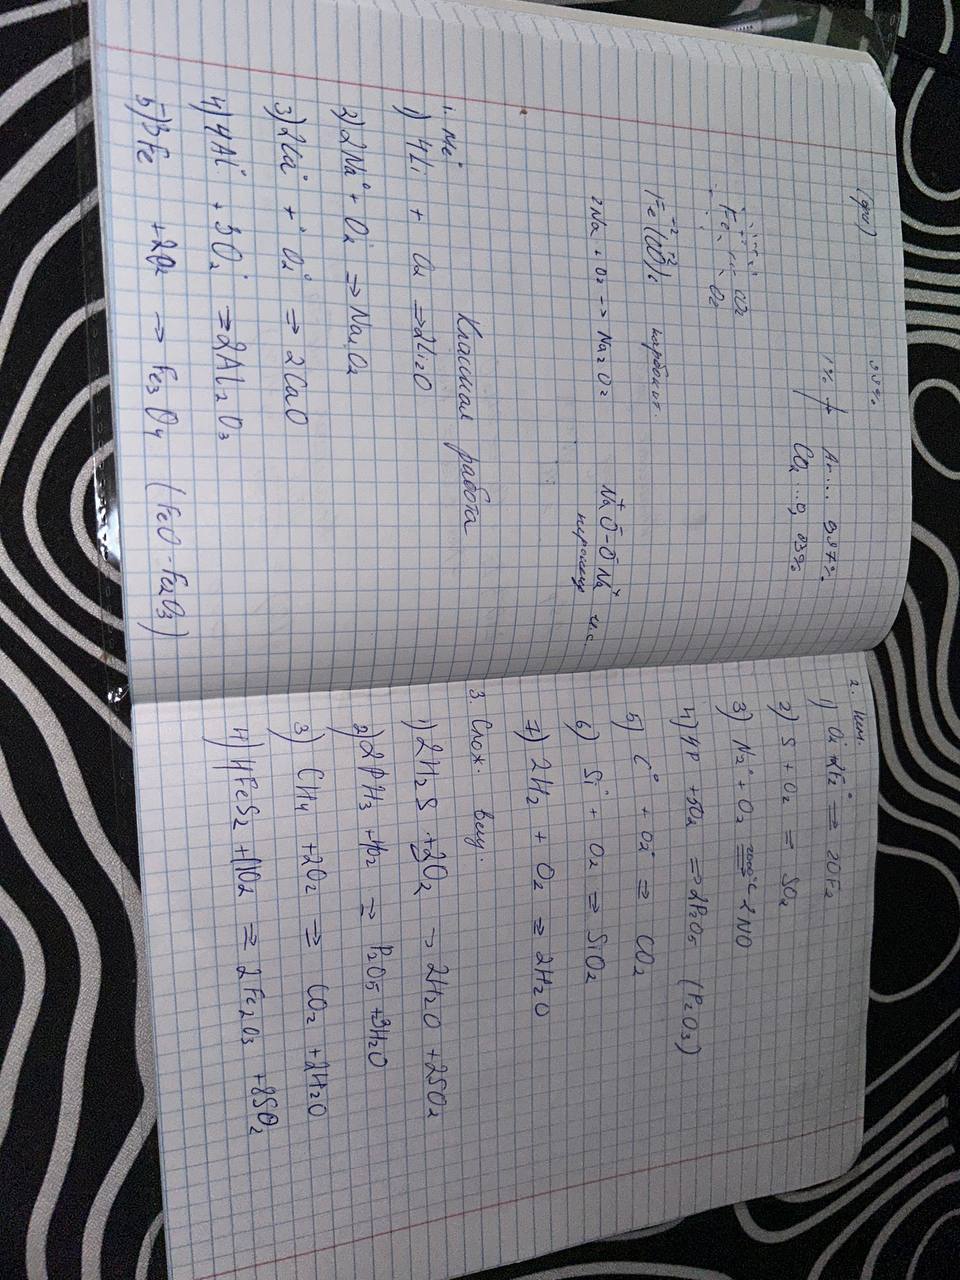 99%
1%
Ar... 0,97%
CO₂ ... 0,03%
Fe CO₂
O₂
Fe⁺²(CO)₅ карбонил
2Na + O₂ → Na₂O₂
Na⁺O⁻-O⁻Na⁺ и.с.
пероксид
Классная работа
1. Me°
1) 4Li + O₂ ⇒ 2Li₂O
2) 2Na° + O₂° ⇒ Na₂O₂
3) 2Ca° + O₂° ⇒ 2CaO
4) 4Al° + 3O₂° ⇒ 2Al₂O₃
5) 3Fe + 2O₂ → Fe₃O₄ (FeO - Fe₂O₃)
2. Нем.
1) O₂° + 2F₂° ⇒ 2OF₂
2) S + O₂ = SO₂
3) N₂° + O₂ ⇒ 2NO
4) 4P + 5O₂ ⇒ 2P₂O₅ (P₂O₃)
5) C° + O₂° ⇒ CO₂
6) Si° + O₂ ⇒ SiO₂
7) 2H₂ + O₂ ⇒ 2H₂O
3. Слож. вещ.
1) 2H₂S + 2O₂ → 2H₂O + 2SO₂
2) 2PH₃ + 4O₂ ⇒ P₂O₅ + 3H₂O
3) CH₄ + 2O₂ ⇒ CO₂ + 2H₂O
4) 4FeS₂ + 11O₂ ⇒ 2Fe₂O₃ + 8SO₂